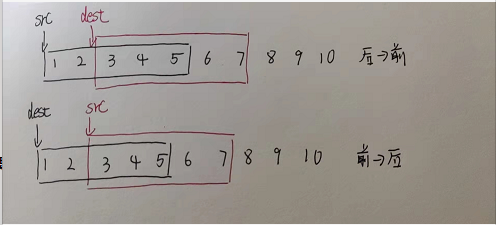 src dest
1 2 3 4 5 6 7 8 9 10 后→前
dest src
1 2 3 4 5 6 7 8 9 10 前→后